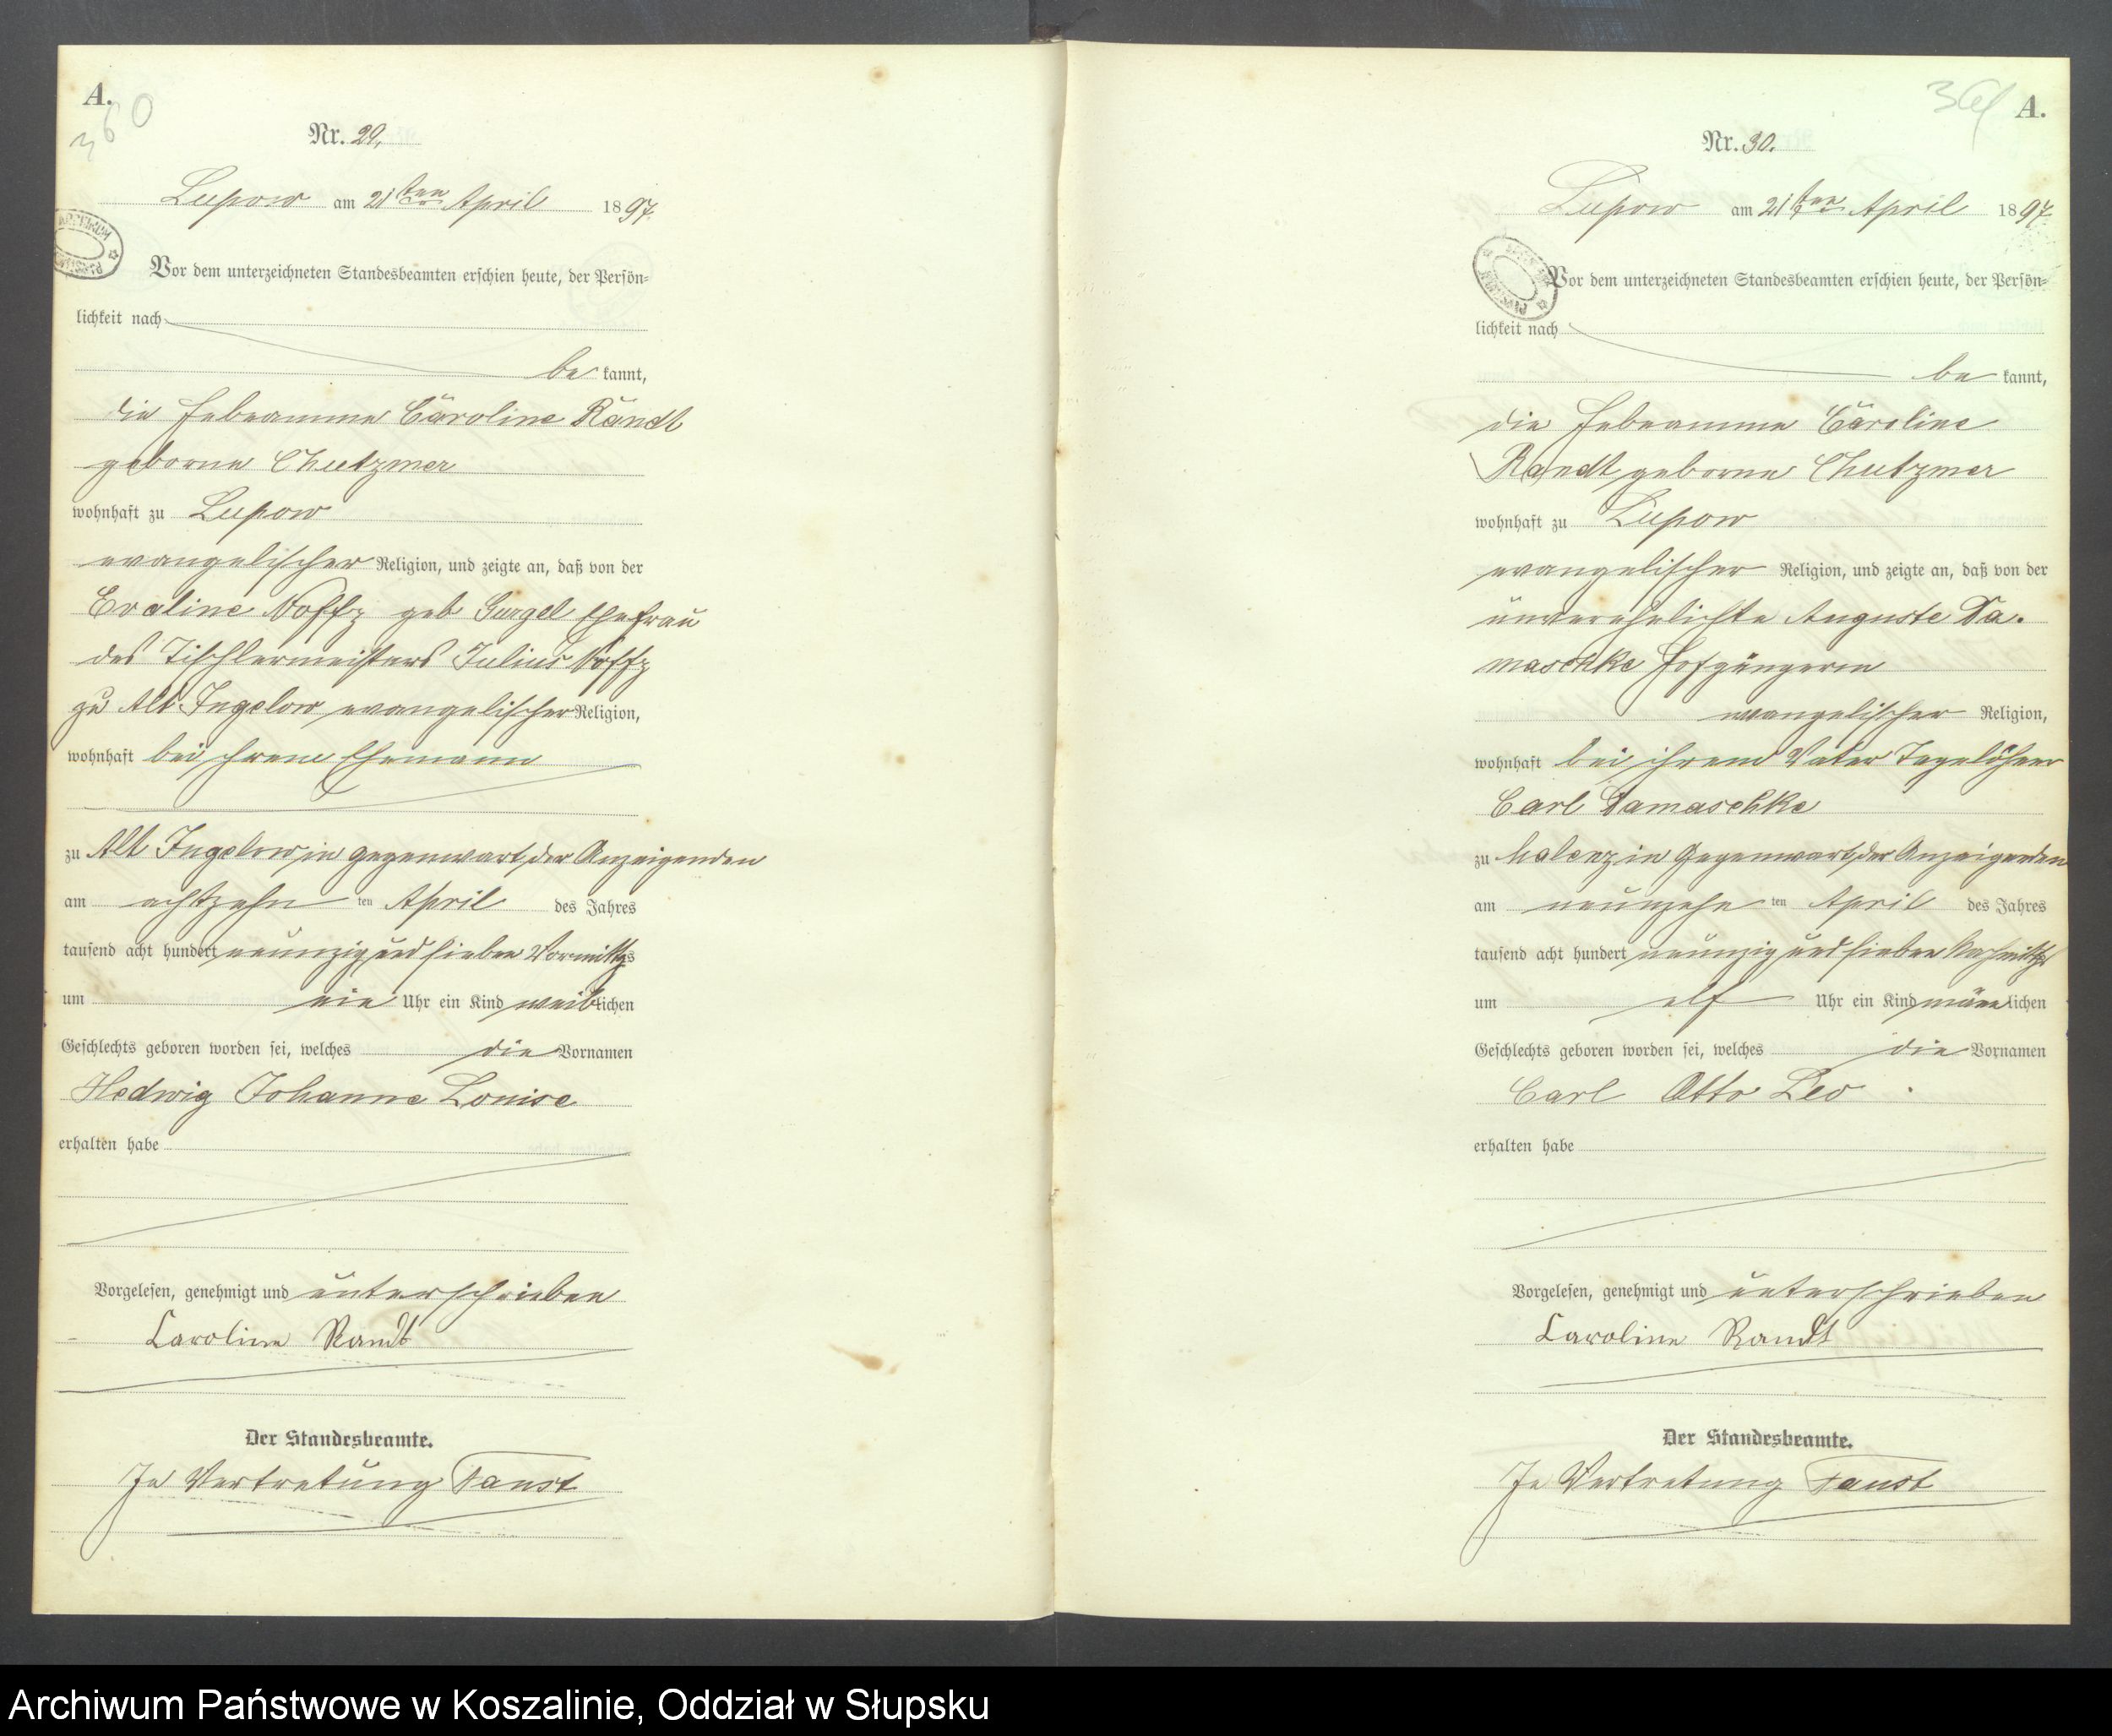 A.
360
Nr. 29.
Lupow am 21ten April 1897.
Vor dem unterzeichneten Standesbeamten erschien heute, der Persön-
lichkeit nach
be kannt,
die Hebeamme Caroline Randt
geborne Chutzmer
wohnhaft zu Lupow
evangelischer Religion, und zeigte an, daß von der
Evaline Noffz geb Gurgel Ehefrau
des Tischlermeisters Julius Noffz
zu Alt Jugelow evangelischer Religion,
wohnhaft bei ihrem Ehemann
zu Alt Jugelow in gegenwart der Anzeigenden
am achtzehn ten April des Jahres
tausend acht hundert neunzig und sieben Vormittgs
um ein Uhr ein Kind weiblichen
Geschlechts geboren worden sei, welches die Vornamen
Hedwig Johanne Louise
erhalten habe
Vorgelesen, genehmigt und unterschrieben
Caroline Randt
Der Standesbeamte.
In Vertretung Faust
A.
Nr. 30.
Lupow am 21ten April 1897.
Vor dem unterzeichneten Standesbeamten erschien heute, der Persön-
lichkeit nach
be kannt,
die Hebeamme Caroline
Randt geborne Chutzmer
wohnhaft zu Lupow
evangelischer Religion, und zeigte an, daß von der
unverehelichte Auguste Da-
maschke Hofgängerin
evangelischer Religion,
wohnhaft bei ihrem Vater Tagelöhner
Carl Damaschke
zu Malenz in Gegenwart der Anzeigenden
am neunzehn ten April des Jahres
tausend acht hundert neunzig und sieben Nachmittgs
um elf Uhr ein Kind männlichen
Geschlechts geboren worden sei, welches die Vornamen
Carl Otto Leo
erhalten habe
Vorgelesen, genehmigt und unterschrieben
Caroline Randt
Der Standesbeamte.
In Vertretung Faust
Archiwum Państwowe w Koszalinie, Oddział w Słupsku